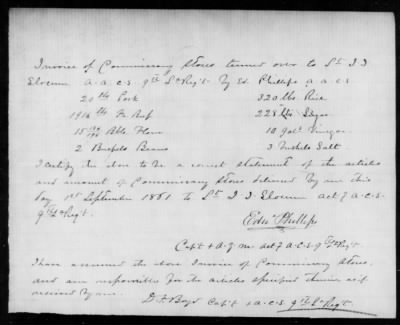 Invoice of Commissary Stores turned over to Lt. J J
Slocum a.a.c.s 9th La Regt. By Ed. Phillips a a c s
20 lbs Pork 320 lbs Rice
1916 lbs Fr Beef 228 lbs Sugar
15 Bbls Flour 10 Gals Vinegar
2 Bushels Beans 3 Bushels Salt
I certify the above to be a correct statement of the articles
and amount of Commissary Stores delivered by me this
day 1st September 1861 to Lt. J J Slocum act g A.C.S.
9th La Regt.
Edw Phillips
Capt & A.Q.M. act g A.C.S 9th Regt.
I have examined the above Invoice of Commissary Stores,
and am responsible for the articles specified therein as if
received by me.
D F Boyd Capt & A.C.S. 9th La Regt.